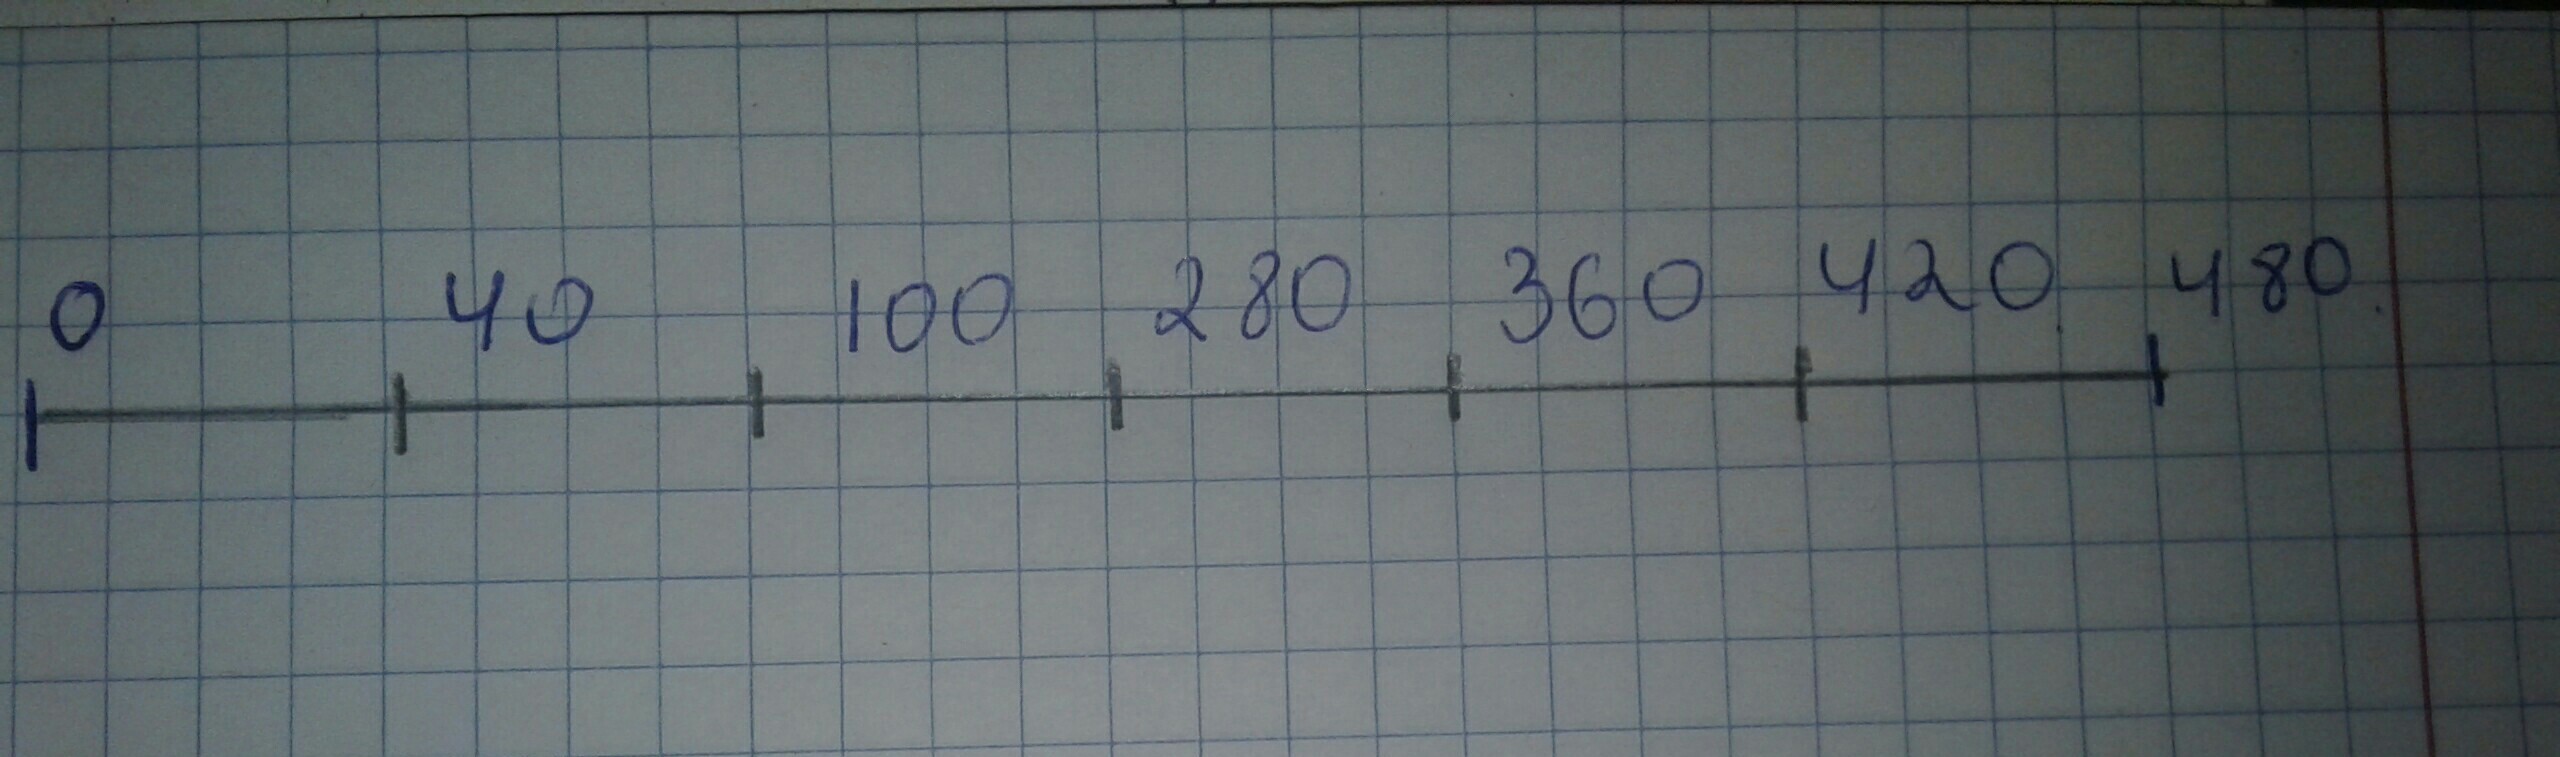 0 40 100 280 360 420 480